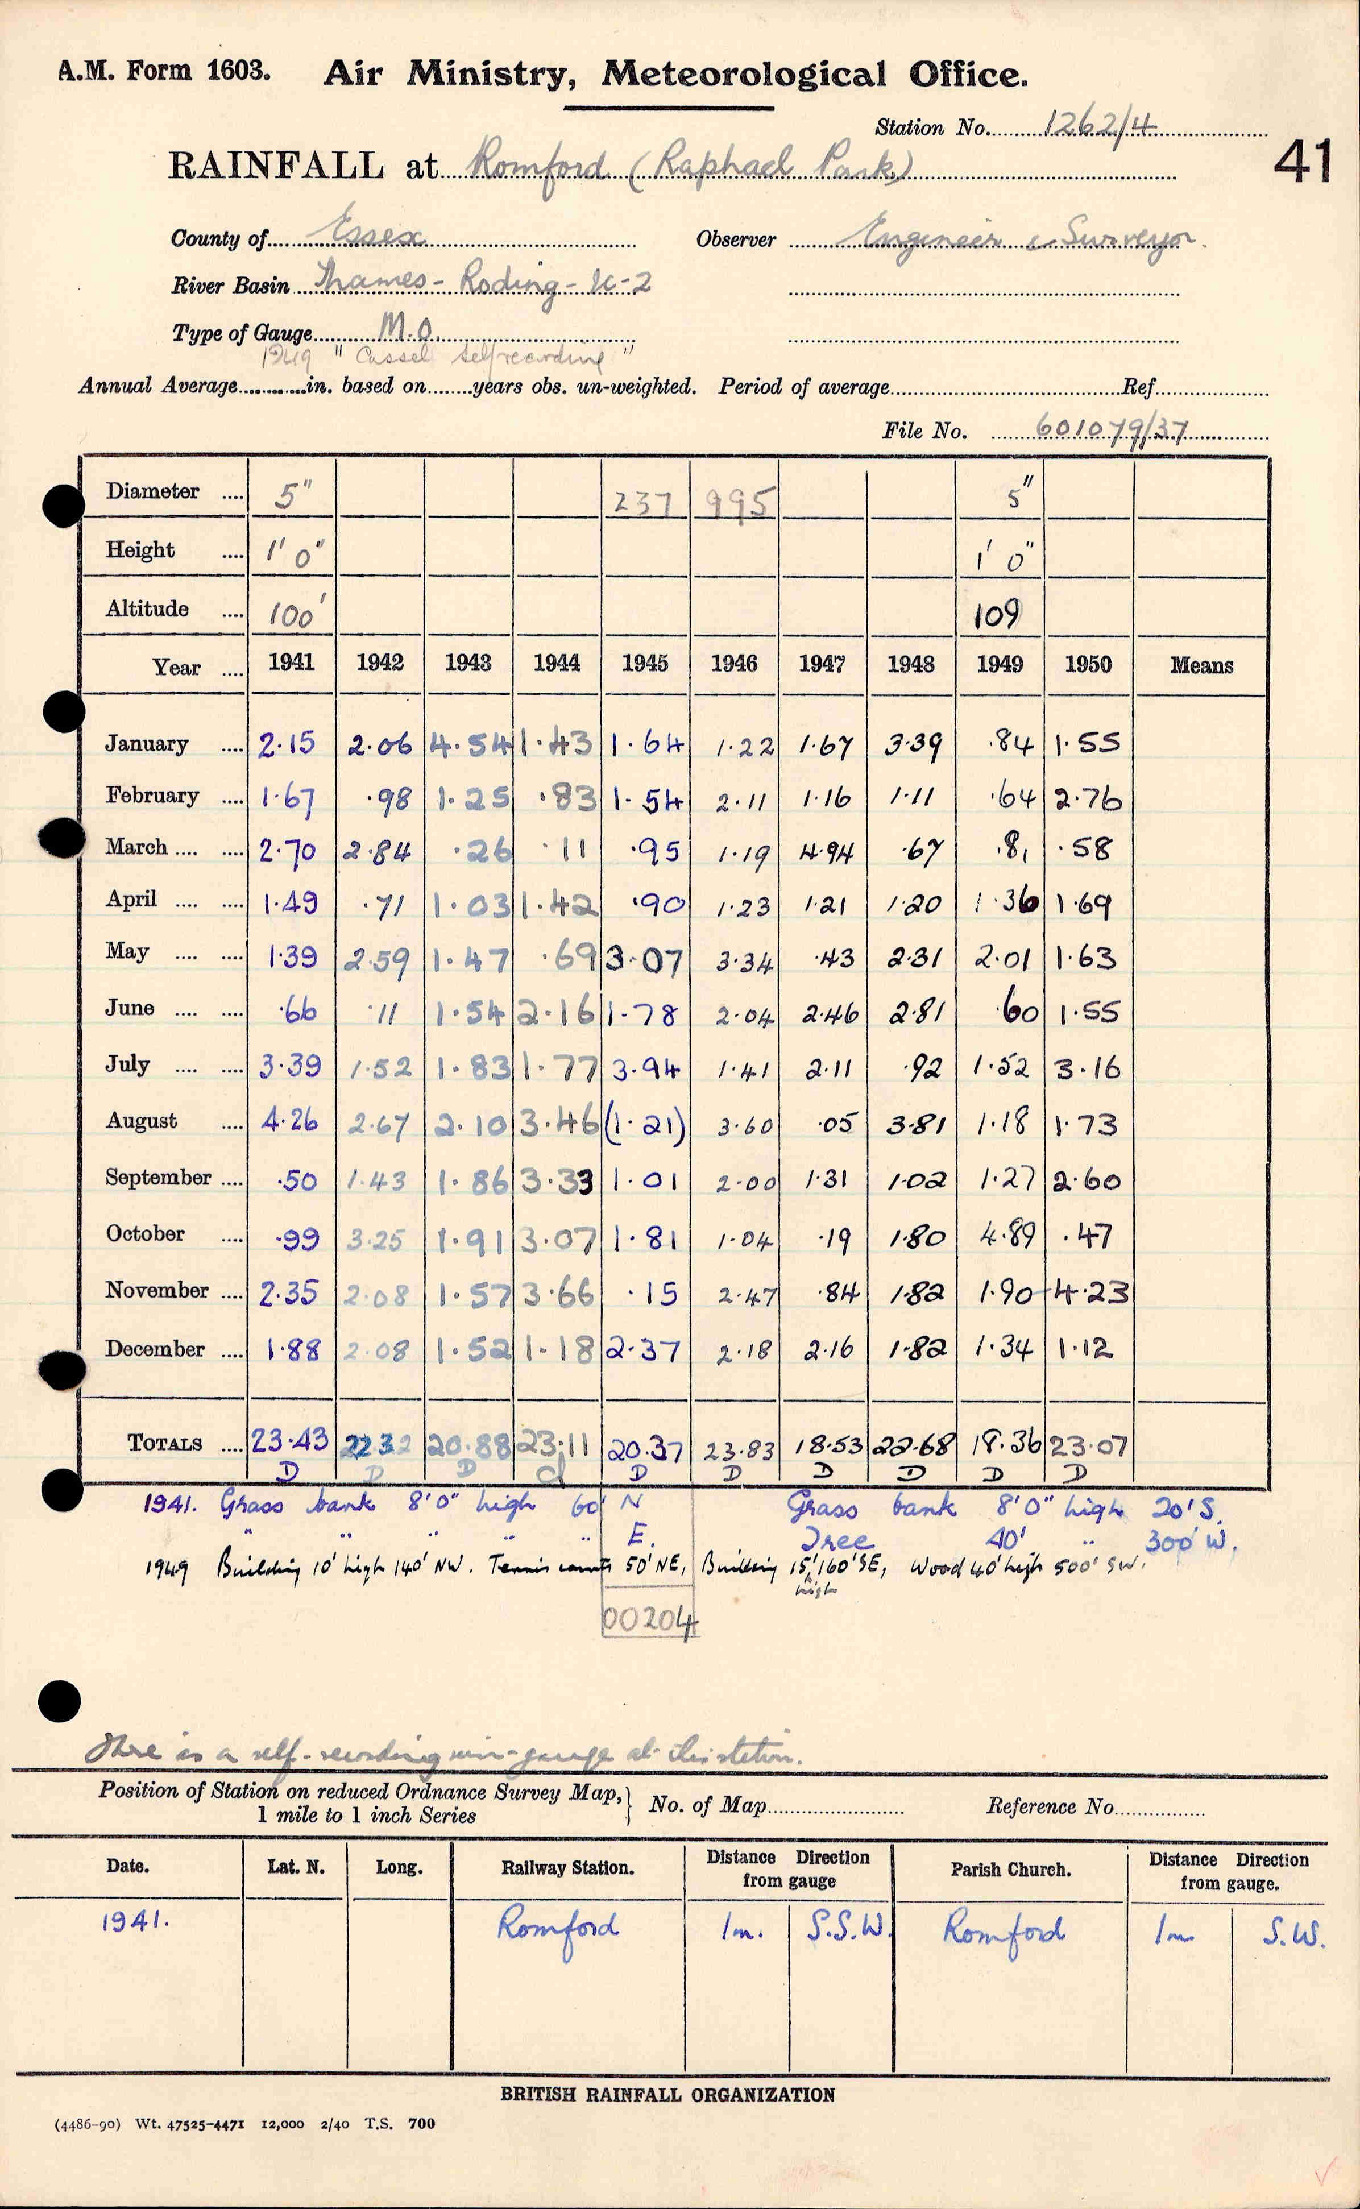 A.M. Form 1603. Air Ministry, Meteorological Office.
Station No. 1262/4
41
RAINFALL at Romford (Raphael Park)
County of Essex Observer Engineer & Surveyor
River Basin Thames - Roding - IC-2
Type of Gauge M.O.
1949 " Cassel selfrecording "
Annual Average in. based on years obs. un-weighted. Period of average Ref.
File No. 601079/37
Diameter .... 5" 237 995 5"
Height .... 1' 0" 1' 0"
Altitude .... 100' 109
Year .... 1941 1942 1943 1944 1945 1946 1947 1948 1949 1950 Means
January .... 2·15 2·06 4·54 1·43 1·64 1·22 1·67 3·39 ·84 1·55
February .... 1·67 ·98 1·25 ·83 1·54 2·11 1·16 1·11 ·64 2·76
March .... .... 2·70 2·84 ·26 ·11 ·95 1·19 4·94 ·67 ·81 ·58
April .... .... 1·49 ·71 1·03 1·42 ·90 1·23 1·21 1·20 1·36 1·69
May .... .... 1·39 2·59 1·47 ·69 3·07 3·34 ·43 2·31 2·01 1·63
June .... .... ·66 ·11 1·54 2·16 1·78 2·04 2·46 2·81 ·60 1·55
July .... .... 3·39 1·52 1·83 1·77 3·94 1·41 2·11 ·92 1·52 3·16
August .... 4·26 2·67 2·10 3·46 (1·21) 3·60 ·05 3·81 1·18 1·73
September .... ·50 1·43 1·86 3·33 1·01 2·00 1·31 1·02 1·27 2·60
October .... ·99 3·25 1·91 3·07 1·81 1·04 ·19 1·80 4·89 ·47
November .... 2·35 2·08 1·57 3·66 ·15 2·47 ·84 1·82 1·90 4·23
December .... 1·88 2·08 1·52 1·18 2·37 2·18 2·16 1·82 1·34 1·12
TOTALS .... 23·43 22 32 20·88 23·11 20·37 23·83 18·53 22·68 18·36 23·07
D D D d D D D D D D
1941. Grass bank 8'0" high 60' N Grass bank 8'0" high 20' S.
" " " " " E. Tree 40' " 300' W.
1949 Building 10' high 140' NW. Tennis courts 50' NE, Building 15' high 160' SE, Wood 40' high 500' SW.
00204
There is a self-recording rain-gauge at this station.
Position of Station on reduced Ordnance Survey Map, } No. of Map Reference No.
1 mile to 1 inch Series
Date. Lat. N. Long. Railway Station. Distance Direction from gauge Parish Church. Distance Direction from gauge.
1941. Romford 1m. S.S.W. Romford 1m S.W.
BRITISH RAINFALL ORGANIZATION
(4486-90) Wt. 47525-4471 12,000 2/40 T.S. 700